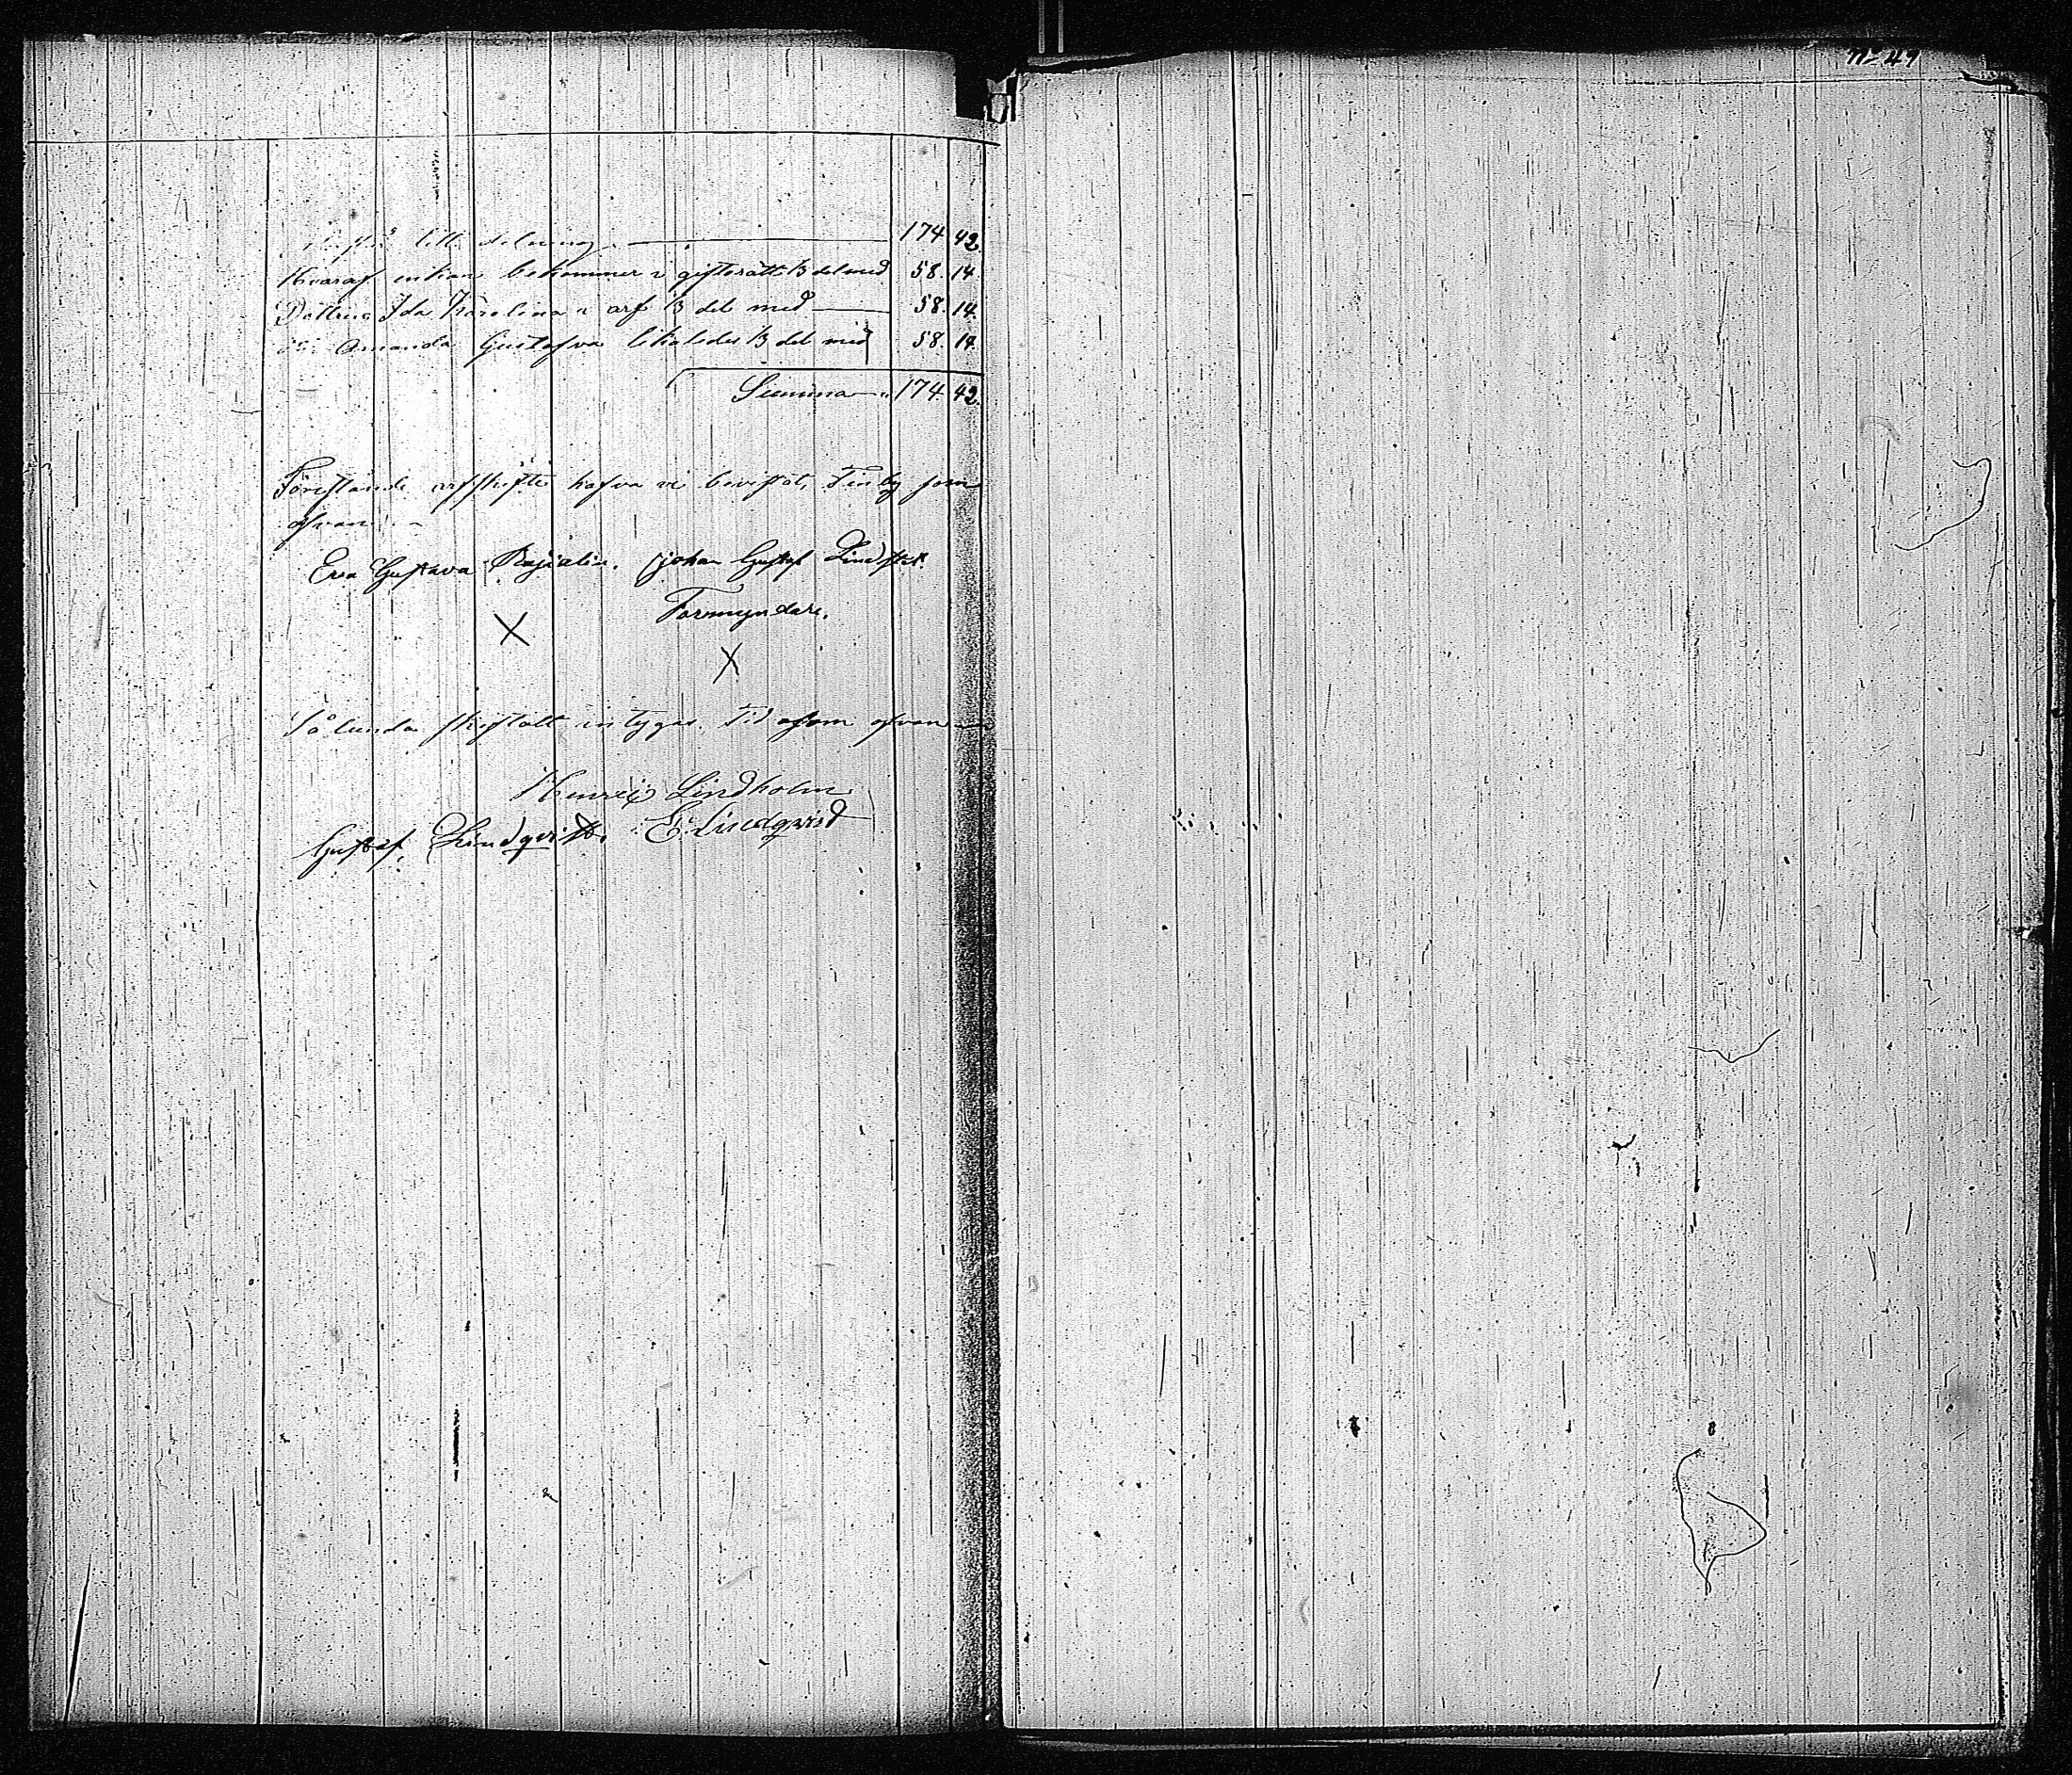 No 47
till delning 174 42.
Hvaraf enkan bekommer i giftorätt 1/3 del med 58. 14.
Dottren Ida Karolina i arf 1/3 del med 58. 14.
Amanda Gustafva likaledes 1/3 del med 58. 14.
Summa 174 42.
Förestående arfskifte hafva vi bevistat, Finby som
ofvan.
Eva Gustava johan Gustaf
Formyndare.
X
X
Sålunda skiftadt intygas. Tid som ofvan
Henrik Lindholm
Gustaf Lindqvist. E: Lindqvist